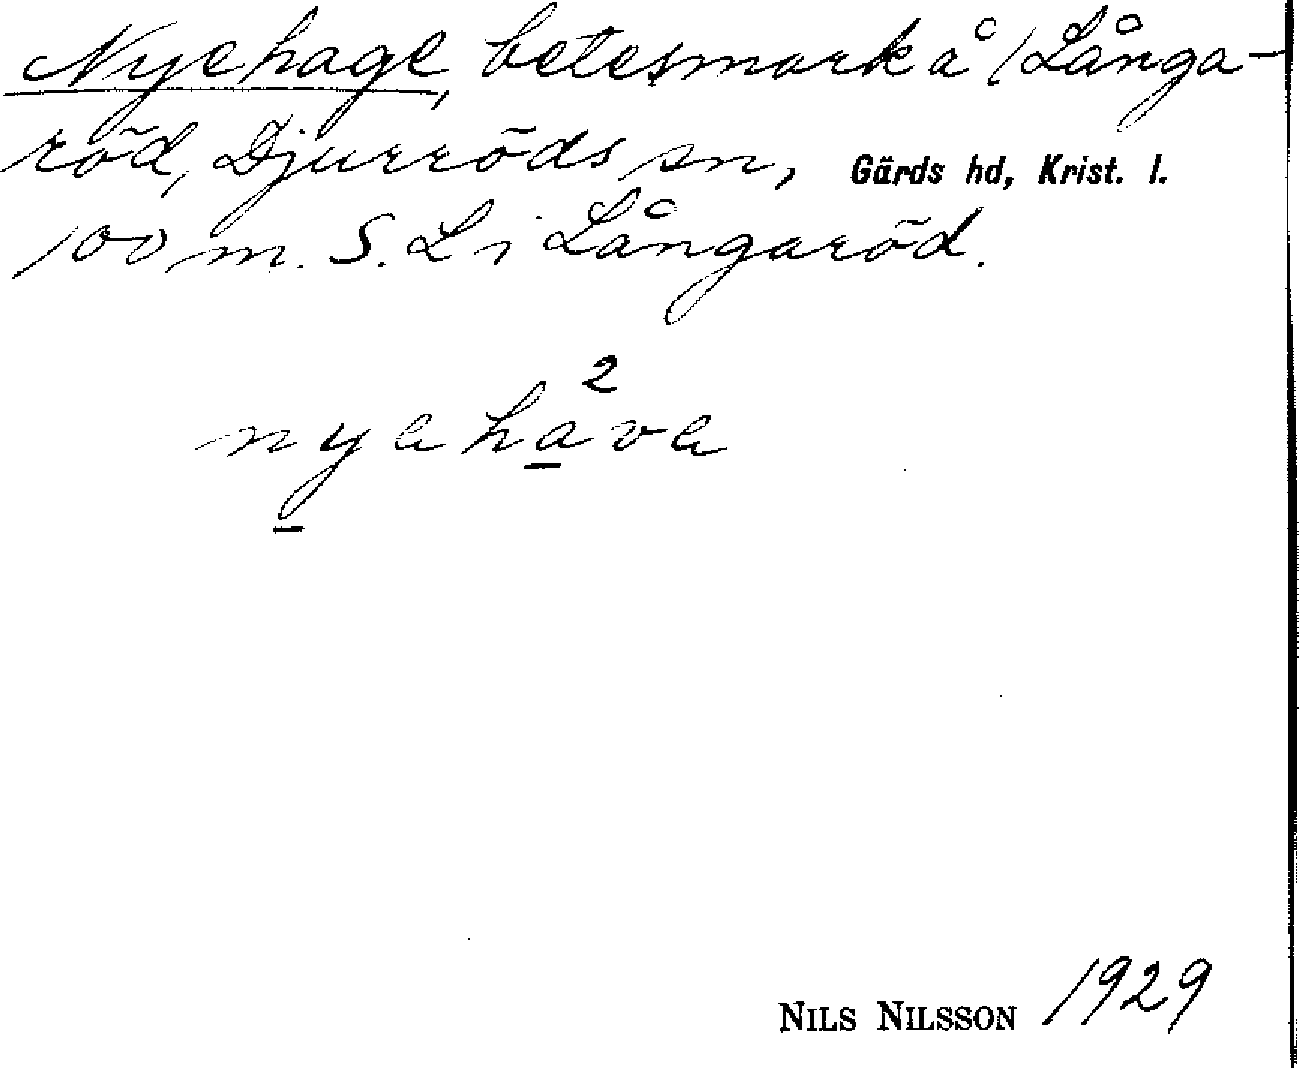 Nyehage, betesmark å 1 Långa-
röd, Djurröds sn, Gärds hd, Krist. l.
100 m. S. L i Långaröd.
2
nyehave
NILS NILSSON 1929